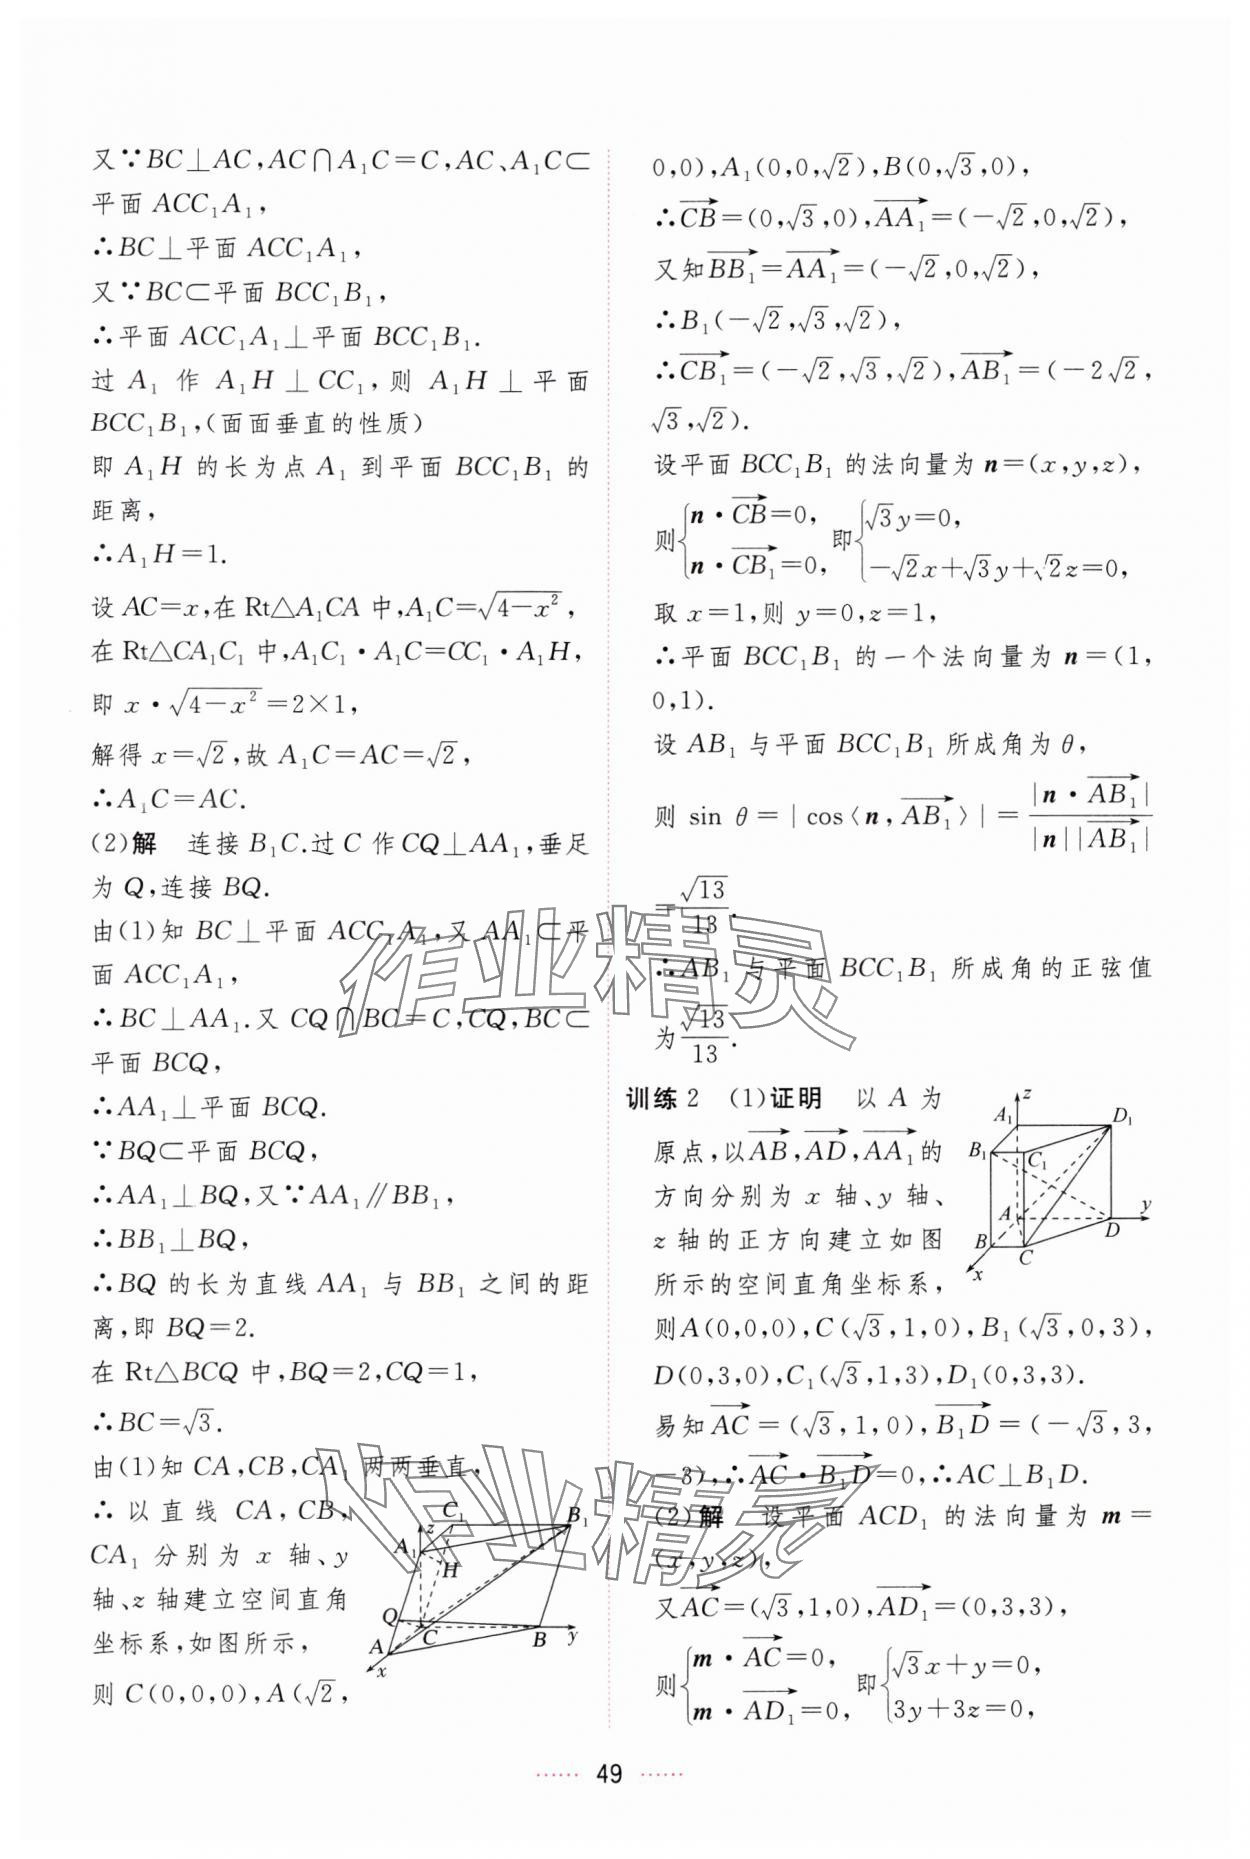 又∵BC⊥AC,AC∩A₁C=C,AC、A₁C⊂
平面 ACC₁A₁,
∴BC⊥平面 ACC₁A₁,
又∵BC⊂平面 BCC₁B₁,
∴平面 ACC₁A₁⊥平面 BCC₁B₁.
过 A₁ 作 A₁H⊥CC₁,则 A₁H⊥平面
BCC₁B₁,(面面垂直的性质)
即 A₁H 的长为点 A₁ 到平面 BCC₁B₁ 的
距离,
∴A₁H=1.
设 AC=x,在 Rt△A₁CA 中,A₁C=√(4-x²),
在 Rt△CA₁C₁ 中,A₁C₁·A₁C=CC₁·A₁H,
即 x·√(4-x²)=2×1,
解得 x=√2,故 A₁C=AC=√2,
∴A₁C=AC.
(2)解 连接 B₁C.过 C 作 CQ⊥AA₁,垂足
为 Q,连接 BQ.
由(1)知 BC⊥平面 ACC₁A₁,又 AA₁⊂平
面 ACC₁A₁,
∴BC⊥AA₁.又 CQ∩BC=C,CQ,BC⊂
平面 BCQ,
∴AA₁⊥平面 BCQ.
∵BQ⊂平面 BCQ,
∴AA₁⊥BQ,又∵AA₁∥BB₁,
∴BB₁⊥BQ,
∴BQ 的长为直线 AA₁ 与 BB₁ 之间的距
离,即 BQ=2.
在 Rt△BCQ 中,BQ=2,CQ=1,
∴BC=√3.
由(1)知 CA,CB,CA₁ 两两垂直,
∴以直线 CA,CB,
CA₁ 分别为 x 轴、y
轴、z 轴建立空间直角
坐标系,如图所示,
则 C(0,0,0),A(√2,
z C₁ B₁
A₁ H
Q C B y
A x
0,0),A₁(0,0,√2),B(0,√3,0),
∴CB→=(0,√3,0),AA₁→=(-√2,0,√2),
又知BB₁→=AA₁→=(-√2,0,√2),
∴B₁(-√2,√3,√2),
∴CB₁→=(-√2,√3,√2),AB₁→=(-2√2,
√3,√2).
设平面 BCC₁B₁ 的法向量为 n=(x,y,z),
则{n·CB→=0, 即{√3y=0,
n·CB₁→=0, -√2x+√3y+√2z=0,
取 x=1,则 y=0,z=1,
∴平面 BCC₁B₁ 的一个法向量为 n=(1,
0,1).
设 AB₁ 与平面 BCC₁B₁ 所成角为 θ,
则 sin θ=|cos⟨n,AB₁→⟩|=|n·AB₁→|/|n||AB₁→|
=√13/13.
∴AB₁ 与平面 BCC₁B₁ 所成角的正弦值
为√13/13.
训练2 (1)证明 以 A 为
原点,以AB→,AD→,AA₁→的
方向分别为 x 轴、y 轴、
z 轴的正方向建立如图
所示的空间直角坐标系,
z
A₁ D₁
B₁ C₁
A D y
B C
x
则A(0,0,0),C(√3,1,0),B₁(√3,0,3),
D(0,3,0),C₁(√3,1,3),D₁(0,3,3).
易知AC→=(√3,1,0),B₁D→=(-√3,3,
-3),∴AC→·B₁D→=0,∴AC⊥B₁D.
(2)解 设平面 ACD₁ 的法向量为 m=
(x,y,z),
又AC→=(√3,1,0),AD₁→=(0,3,3),
则{m·AC→=0, 即{√3x+y=0,
m·AD₁→=0, 3y+3z=0,
49
作业精灵
作业精灵